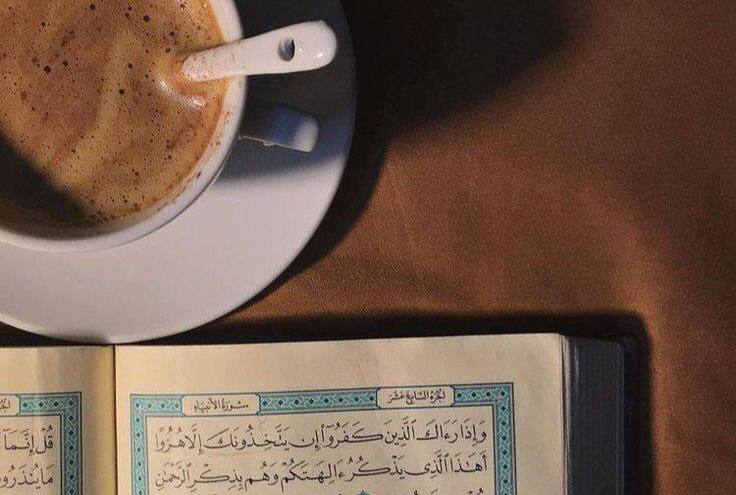 الجزء السابع عشر
سورة الأنبياء
وَإِذَا رَءَاكَ الَّذِينَ كَفَرُوٓا۟ إِن يَتَّخِذُونَكَ إِلَّا هُزُوًا
أَهَٰذَا الَّذِى يَذْكُرُ ءَالِهَتَكُمْ وَهُم بِذِكْرِ الرَّحْمَٰنِ
قُلْ إِنَّمَآ
مَا يُنذَرُو